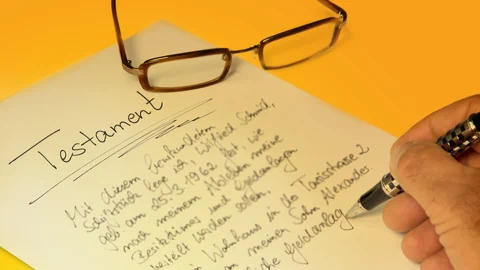 Testament
Mit diesem beurkundetem
Schriftstück lege ich, Wilfried Schmid,
geb. am 25.3.1962 fest, wie
nach meinem Ableben meine
Besitztümer und Geldanlagen
verteilt werden sollen.
Wohnhaus in der Tannisstrasse 2
an meinen Sohn Alexander
Geldanlag